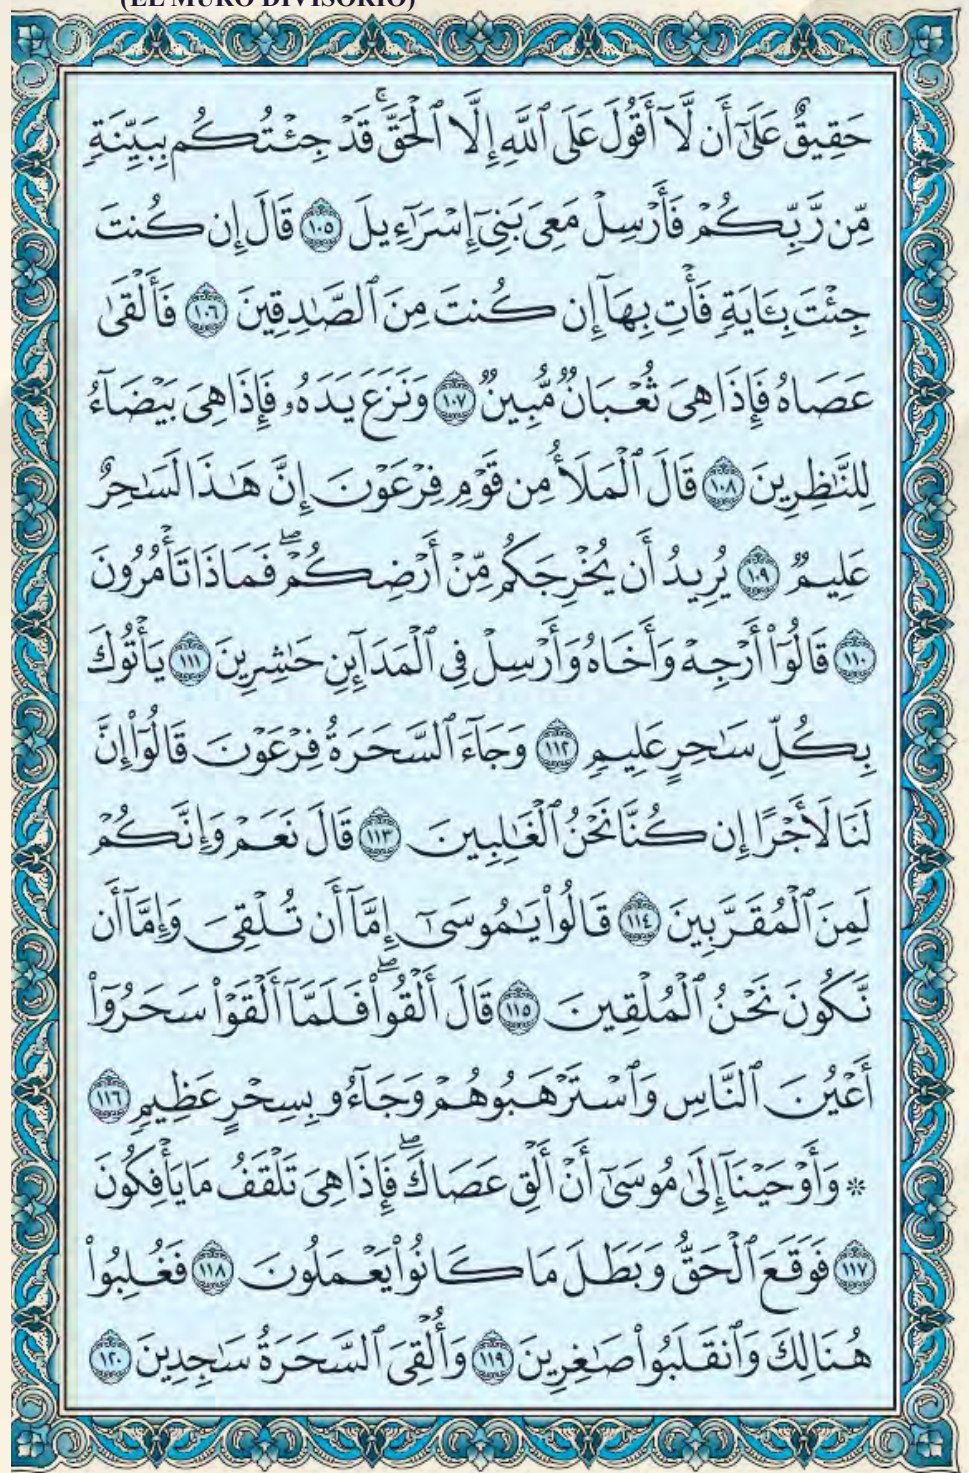 (EL MURO DIVISORIO)
حَقِيقٌ عَلَىٰٓ أَن لَّآ أَقُولَ عَلَى ٱللَّهِ إِلَّا ٱلْحَقَّۚ قَدْ جِئْتُكُم بِبَيِّنَةٍ
مِّن رَّبِّكُمْ فَأَرْسِلْ مَعِىَ بَنِىٓ إِسْرَٰٓءِيلَ ١٠٥ قَالَ إِن كُنتَ
جِئْتَ بِـَٔايَةٍ فَأْتِ بِهَآ إِن كُنتَ مِنَ ٱلصَّٰدِقِينَ ١٠٦ فَأَلْقَىٰ
عَصَاهُ فَإِذَا هِىَ ثُعْبَانٌ مُّبِينٌ ١٠٧ وَنَزَعَ يَدَهُۥ فَإِذَا هِىَ بَيْضَآءُ
لِلنَّٰظِرِينَ ١٠٨ قَالَ ٱلْمَلَأُ مِن قَوْمِ فِرْعَوْنَ إِنَّ هَٰذَا لَسَٰحِرٌ
عَلِيمٌ ١٠٩ يُرِيدُ أَن يُخْرِجَكُم مِّنْ أَرْضِكُمْۖ فَمَاذَا تَأْمُرُونَ
١١٠ قَالُوٓا۟ أَرْجِهْ وَأَخَاهُ وَأَرْسِلْ فِى ٱلْمَدَآئِنِ حَٰشِرِينَ ١١١ يَأْتُوكَ
بِكُلِّ سَٰحِرٍ عَلِيمٍ ١١٢ وَجَآءَ ٱلسَّحَرَةُ فِرْعَوْنَ قَالُوٓا۟ إِنَّ
لَنَا لَأَجْرًا إِن كُنَّا نَحْنُ ٱلْغَٰلِبِينَ ١١٣ قَالَ نَعَمْ وَإِنَّكُمْ
لَمِنَ ٱلْمُقَرَّبِينَ ١١٤ قَالُوا۟ يَٰمُوسَىٰٓ إِمَّآ أَن تُلْقِىَ وَإِمَّآ أَن
نَّكُونَ نَحْنُ ٱلْمُلْقِينَ ١١٥ قَالَ أَلْقُوا۟ۖ فَلَمَّآ أَلْقَوْا۟ سَحَرُوٓا۟
أَعْيُنَ ٱلنَّاسِ وَٱسْتَرْهَبُوهُمْ وَجَآءُو بِسِحْرٍ عَظِيمٍ ١١٦
* وَأَوْحَيْنَآ إِلَىٰ مُوسَىٰٓ أَنْ أَلْقِ عَصَاكَۖ فَإِذَا هِىَ تَلْقَفُ مَا يَأْفِكُونَ
١١٧ فَوَقَعَ ٱلْحَقُّ وَبَطَلَ مَا كَانُوا۟ يَعْمَلُونَ ١١٨ فَغُلِبُوا۟
هُنَالِكَ وَٱنقَلَبُوا۟ صَٰغِرِينَ ١١٩ وَأُلْقِىَ ٱلسَّحَرَةُ سَٰجِدِينَ ١٢٠